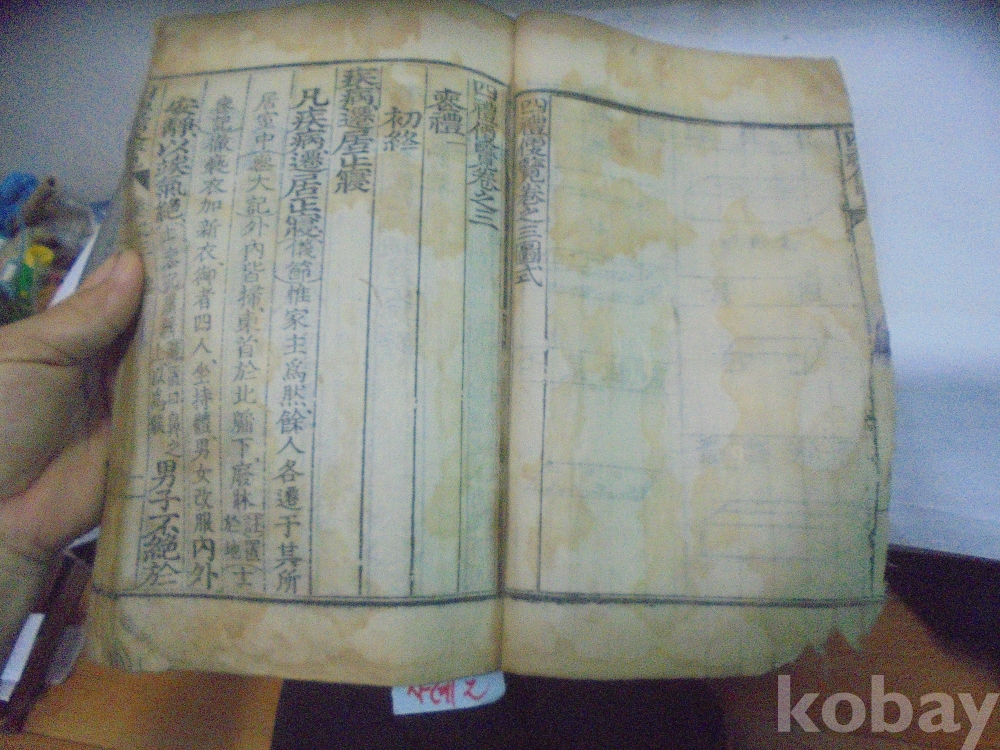 四禮便覽卷之三圖式
四禮便覽卷之三
喪禮一
初終
疾病遷居正寢
凡疾病遷居正寢 儀節 惟家主爲然餘人各遷于其所
居室中 喪大記外內皆掃東首於北牖下廢牀 於地 士
喪記 徹褻衣加新衣御者四人坐持體男女改服內外
安靜以俟氣絶 男子不絶於
kobay
사례 2